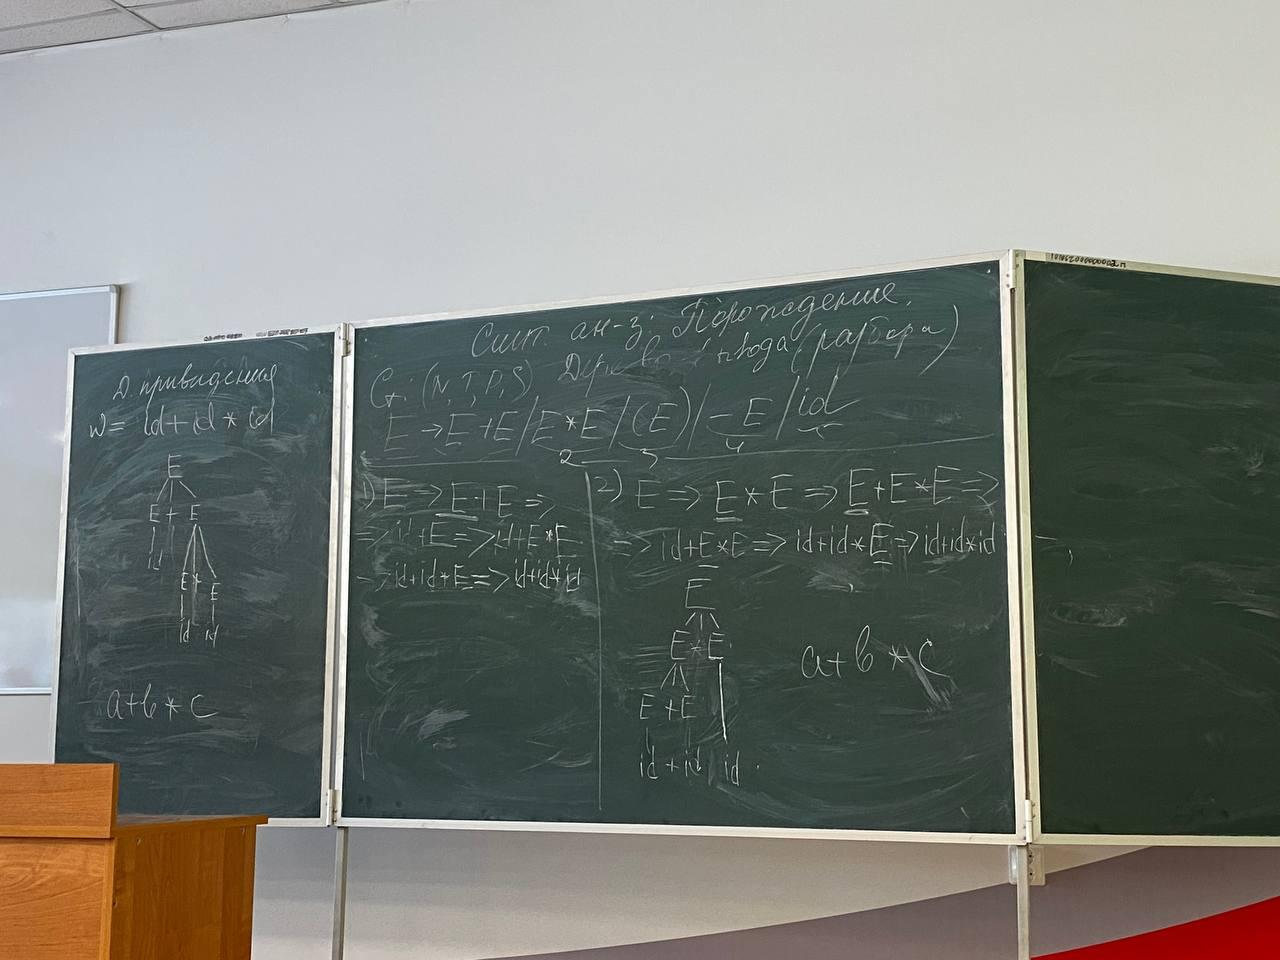 Д. приведения
W = id+id * id
E
E + E
id
E * E
id id
a+b * c
Синт. ан-з: Порождение.
Дерево вывода (разбора)
G: (N, T, P, S)
E → E + E / E * E / (E) / - E / id
2 3 4
1) E => E + E =>
=> id + E => id + E * E
=> id+id * E => id+id*id
2) E => E * E => E + E * E =>
=> id + E * E => id+id * E => id+id*id
E
E * E
E + E
id + id id
a + b * c
1010620000000002